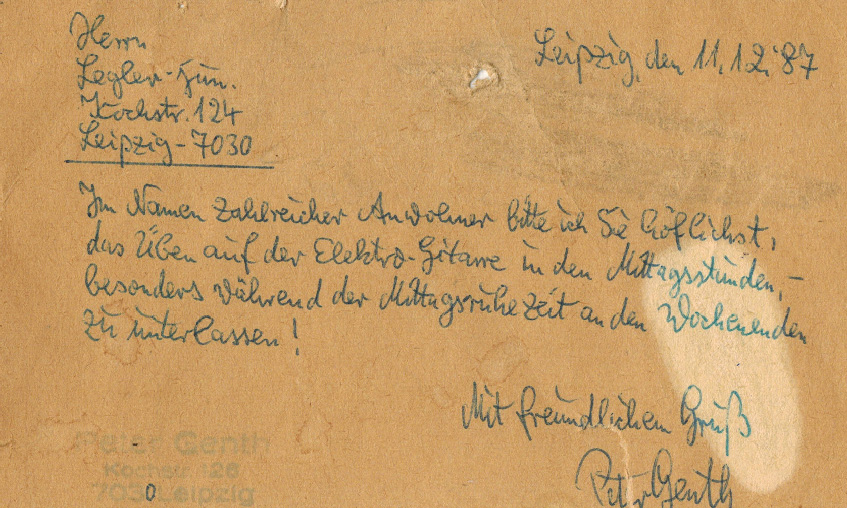 Herrn
Legler-jun.
Kochstr. 124
Leipzig-7030
Leipzig, den 11.12.87
Im Namen zahlreicher Anwohner bitte ich Sie höflichst,
das Üben auf der Elektro-Gitarre in den Mittagsstunden,–
besonders während der Mittagsruhezeit an den Wochenenden
zu unterlassen!
Mit freundlichem Gruß
Peter Genth
Peter Genth
Kochstr. 126
7030 Leipzig